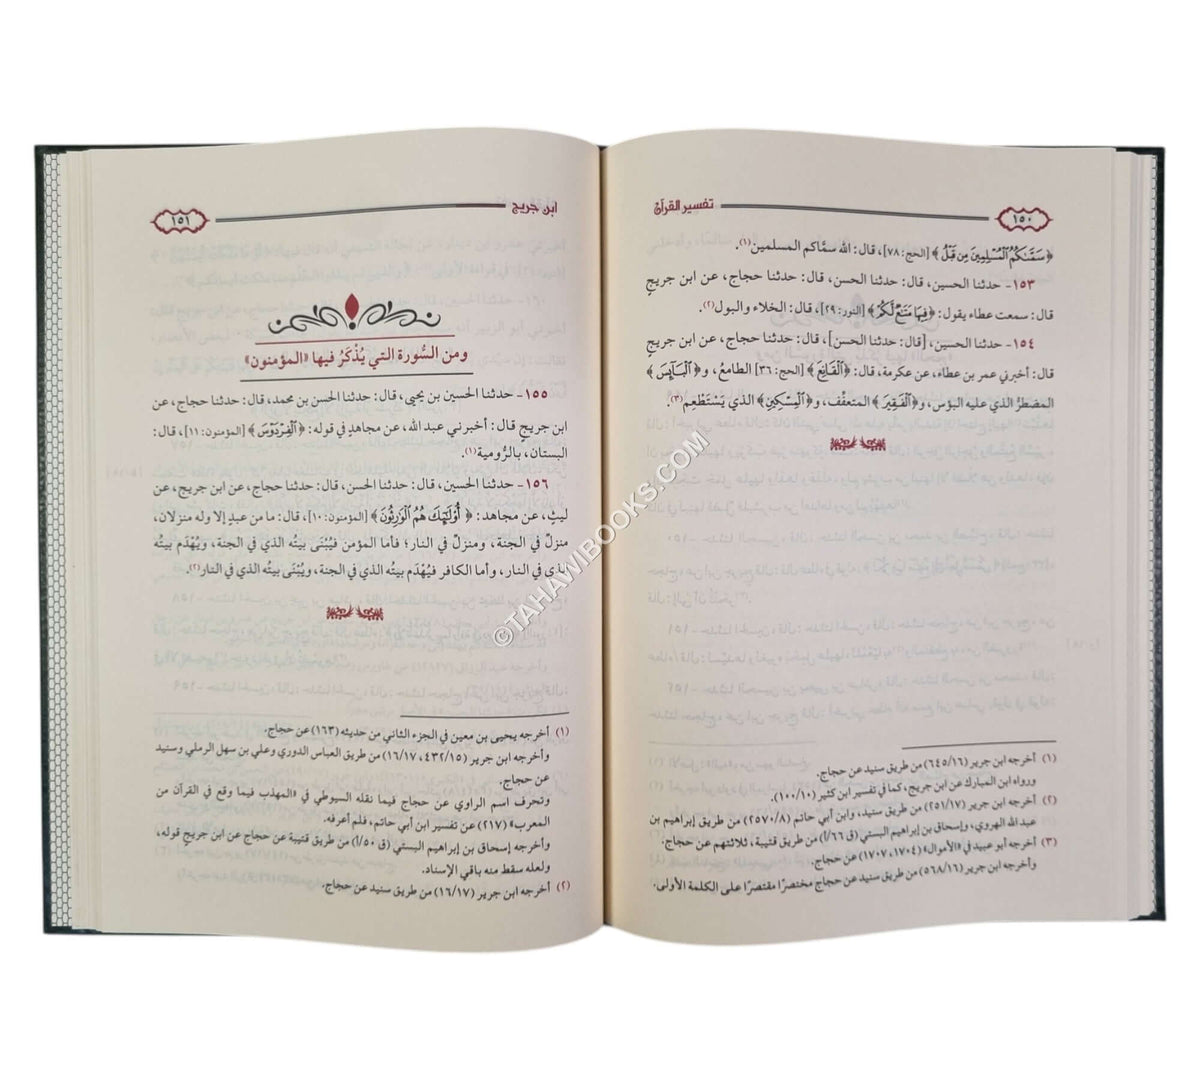 ١٥٠
تفسير القرآن
﴿سَمَّىٰكُمُ ٱلْمُسْلِمِينَ مِن قَبْلُ﴾ [الحج: ٧٨]، قال: الله سمَّاكم المسلمين(١).
١٥٣- حدثنا الحسين، قال: حدثنا الحسن، قال: حدثنا حجاج، عن ابن جريجٍ
قال: سمعت عطاء يقول: ﴿فِيهَا مَتَٰعٌ لَّكُمْ﴾ [النور: ٢٩]، قال: الخلاء والبول(٢).
١٥٤- حدثنا الحسين، [قال: حدثنا الحسن]، قال: حدثنا حجاج، عن ابن جريجٍ
قال: أخبرني عمر بن عطاء، عن عكرمة، قال: ﴿ٱلْقَانِعَ﴾ [الحج: ٣٦] الطامعُ، و﴿ٱلْبَآئِسَ﴾
المضطرُّ الذي عليه البؤس، و﴿ٱلْفَقِيرَ﴾ المتعفِّف، و﴿ٱلْمِسْكِينِ﴾ الذي يَسْتَطْعِم(٣).
(١) أخرجه ابن جرير (٦٤٥/١٦) من طريق سنيد عن حجاج.
ورواه ابن المبارك عن ابن جريج، كما في تفسير ابن كثير (١٠٠/١٠).
(٢) أخرجه ابن جرير (٢٥١/١٧) من طريق سنيد، وابن أبي حاتم (٢٥٧٠/٨) من طريق إبراهيم بن
عبد الله الهروي، وإسحاق بن إبراهيم البستي (ق ٦٦/أ) من طريق قتيبة، ثلاثتهم عن حجاج.
(٣) أخرجه أبو عبيد في «الأموال» (١٧٠٤، ١٧٠٧) عن حجاج.
وأخرجه ابن جرير (٥٦٨/١٦) من طريق سنيد عن حجاج مختصرًا مقتصرًا على الكلمة الأولى.
ابن جريج
١٥١
ومن السُّورة التي يُذْكَرُ فيها «المؤمنون»
١٥٥- حدثنا الحسين بن يحيى، قال: حدثنا الحسن بن محمد، قال: حدثنا حجاج، عن
ابن جريجٍ قال: أخبرني عبد الله، عن مجاهدٍ في قوله: ﴿ٱلْفِرْدَوْسَ﴾ [المؤمنون: ١١]، قال:
البستان، بالرُّومية(١).
١٥٦- حدثنا الحسين، قال: حدثنا الحسن، قال: حدثنا حجاج، عن ابن جريج، عن
ليثٍ، عن مجاهد: ﴿أُو۟لَٰٓئِكَ هُمُ ٱلْوَٰرِثُونَ﴾ [المؤمنون: ١٠]، قال: ما من عبدٍ إلا وله منزلان،
منزلٌ في الجنة، ومنزلٌ في النار؛ فأما المؤمن فيُبْنَى بيتُه الذي في الجنة، ويُهْدَم بيتُه
الذي في النار، وأما الكافر فيُهْدَم بيتُه الذي في الجنة، ويُبْنَى بيتُه الذي في النار(٢).
(١) أخرجه يحيى بن معين في الجزء الثاني من حديثه (١٦٣) عن حجاج.
وأخرجه ابن جرير (٤٣٢/١٥، ١٦/١٧) من طريق العباس الدوري وعلي بن سهل الرملي وسنيد
عن حجاج.
وتحرف اسم الراوي عن حجاج فيما نقله السيوطي في «المهذب فيما وقع في القرآن من
المعرب» (٢١٧) عن تفسير ابن أبي حاتم، فلم أعرفه.
وأخرجه إسحاق بن إبراهيم البستي (ق ٥٠/أ) من طريق قتيبة عن حجاج عن ابن جريجٍ قوله،
ولعله سقط منه باقي الإسناد.
(٢) أخرجه ابن جرير (١٦/١٧) من طريق سنيد عن حجاج.
©TAHAWIBOOKS.COM